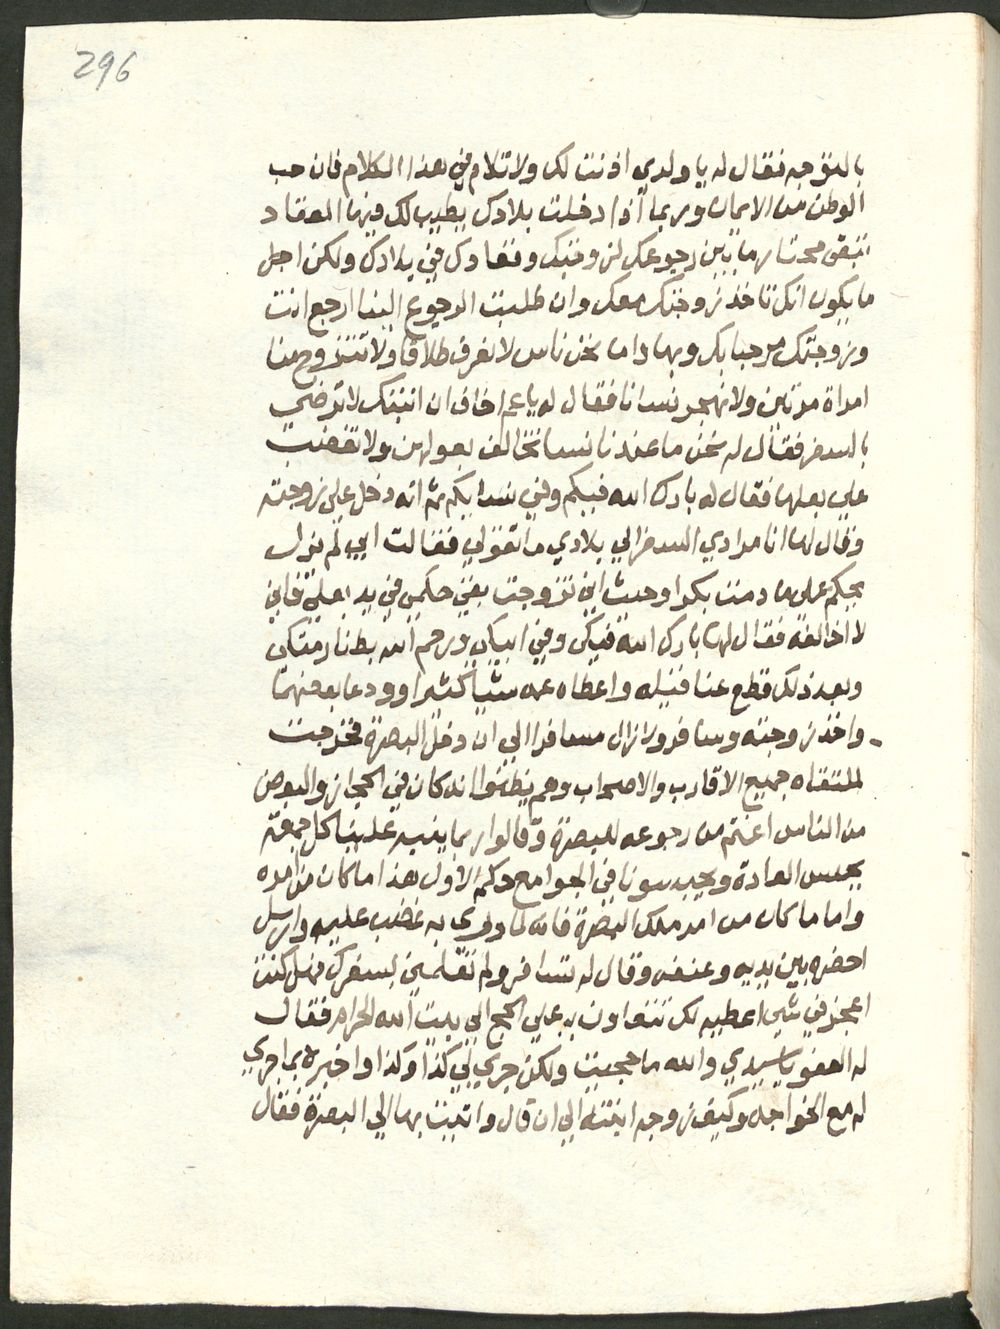 296
بالتوجه فقال له يا ولدي اذنت لك ولا تلام في هذا الكلام فان حب
الوطن من الايمان وربما اذا دخلت بلادك يطيب لك فيها القعاد
تبقى محتار ما بين رجوعك لزوجتك وقعادك في بلادك ولكن اجل
ما يكون انك تاخذ زوجتك معك وان طلبت الرجوع الينا ارجع انت
وزوجتك مرحبا بك وبها واما نحن ناس لا نعرف طلاقا ولا تتزوج منا
امراة مرتين ولا نهجر نسانا فقال له يا عم اخاف ان ابنتك لا ترضي
بالسفر فقال له نحن ما عندنا نسا تخالف بعولهن ولا تغضب
علي بعلها فقال له بارك الله فيكم وفي نسايكم ثم انه دخل علي زوجته
وقال لها انا مرادي السفر الي بلادي ما تقولي فقالت ابي لم يزل
يحكم علي ما دمت بكرا وحيث اني تزوجت بقي حكمي في يد بعلي فاني
لا اخالفه فقال لها بارك الله فيكي وفي ابيكي ورحم الله بطنا رمتكي
وبعد ذلك قطع عنا فتيله واعطاه عمه شيا كثيرا وودعا بعضهما
واخذ زوجته وسافر ولا زال مسافرا الي ان دخل البصرة فخرجت
لملتقاه جميع الاقارب والاصحاب وهم يظنوا انه كان في الحجاز والبعض
من الناس اغتم من رجوعه للبصرة وقالوا ربما ينبه علينا كل جمعة
بحسب العادة ويحبسونا في الجوامع حكم الاول هذا ما كان من امره
واما ما كان من امر ملك البصرة فانه لما دري به غضب عليه وارسل
احضره بين يديه وعنفه وقال له تسافر ولم تعلمني بسفرك فهل كنت
اعجز في شي اعطيه لك تتعاون به علي الحج الي بيت الله الحرام فقال
له العفو يا سيدي والله ما حجيت ولكن جري لي كذا وكذا واخبره بما جري
له مع الخواجه وكيف زوجه ابنته الي ان قال واتيت بها الي البصرة فقال